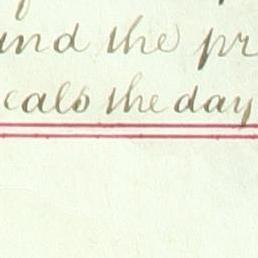 and the pr
eals the day